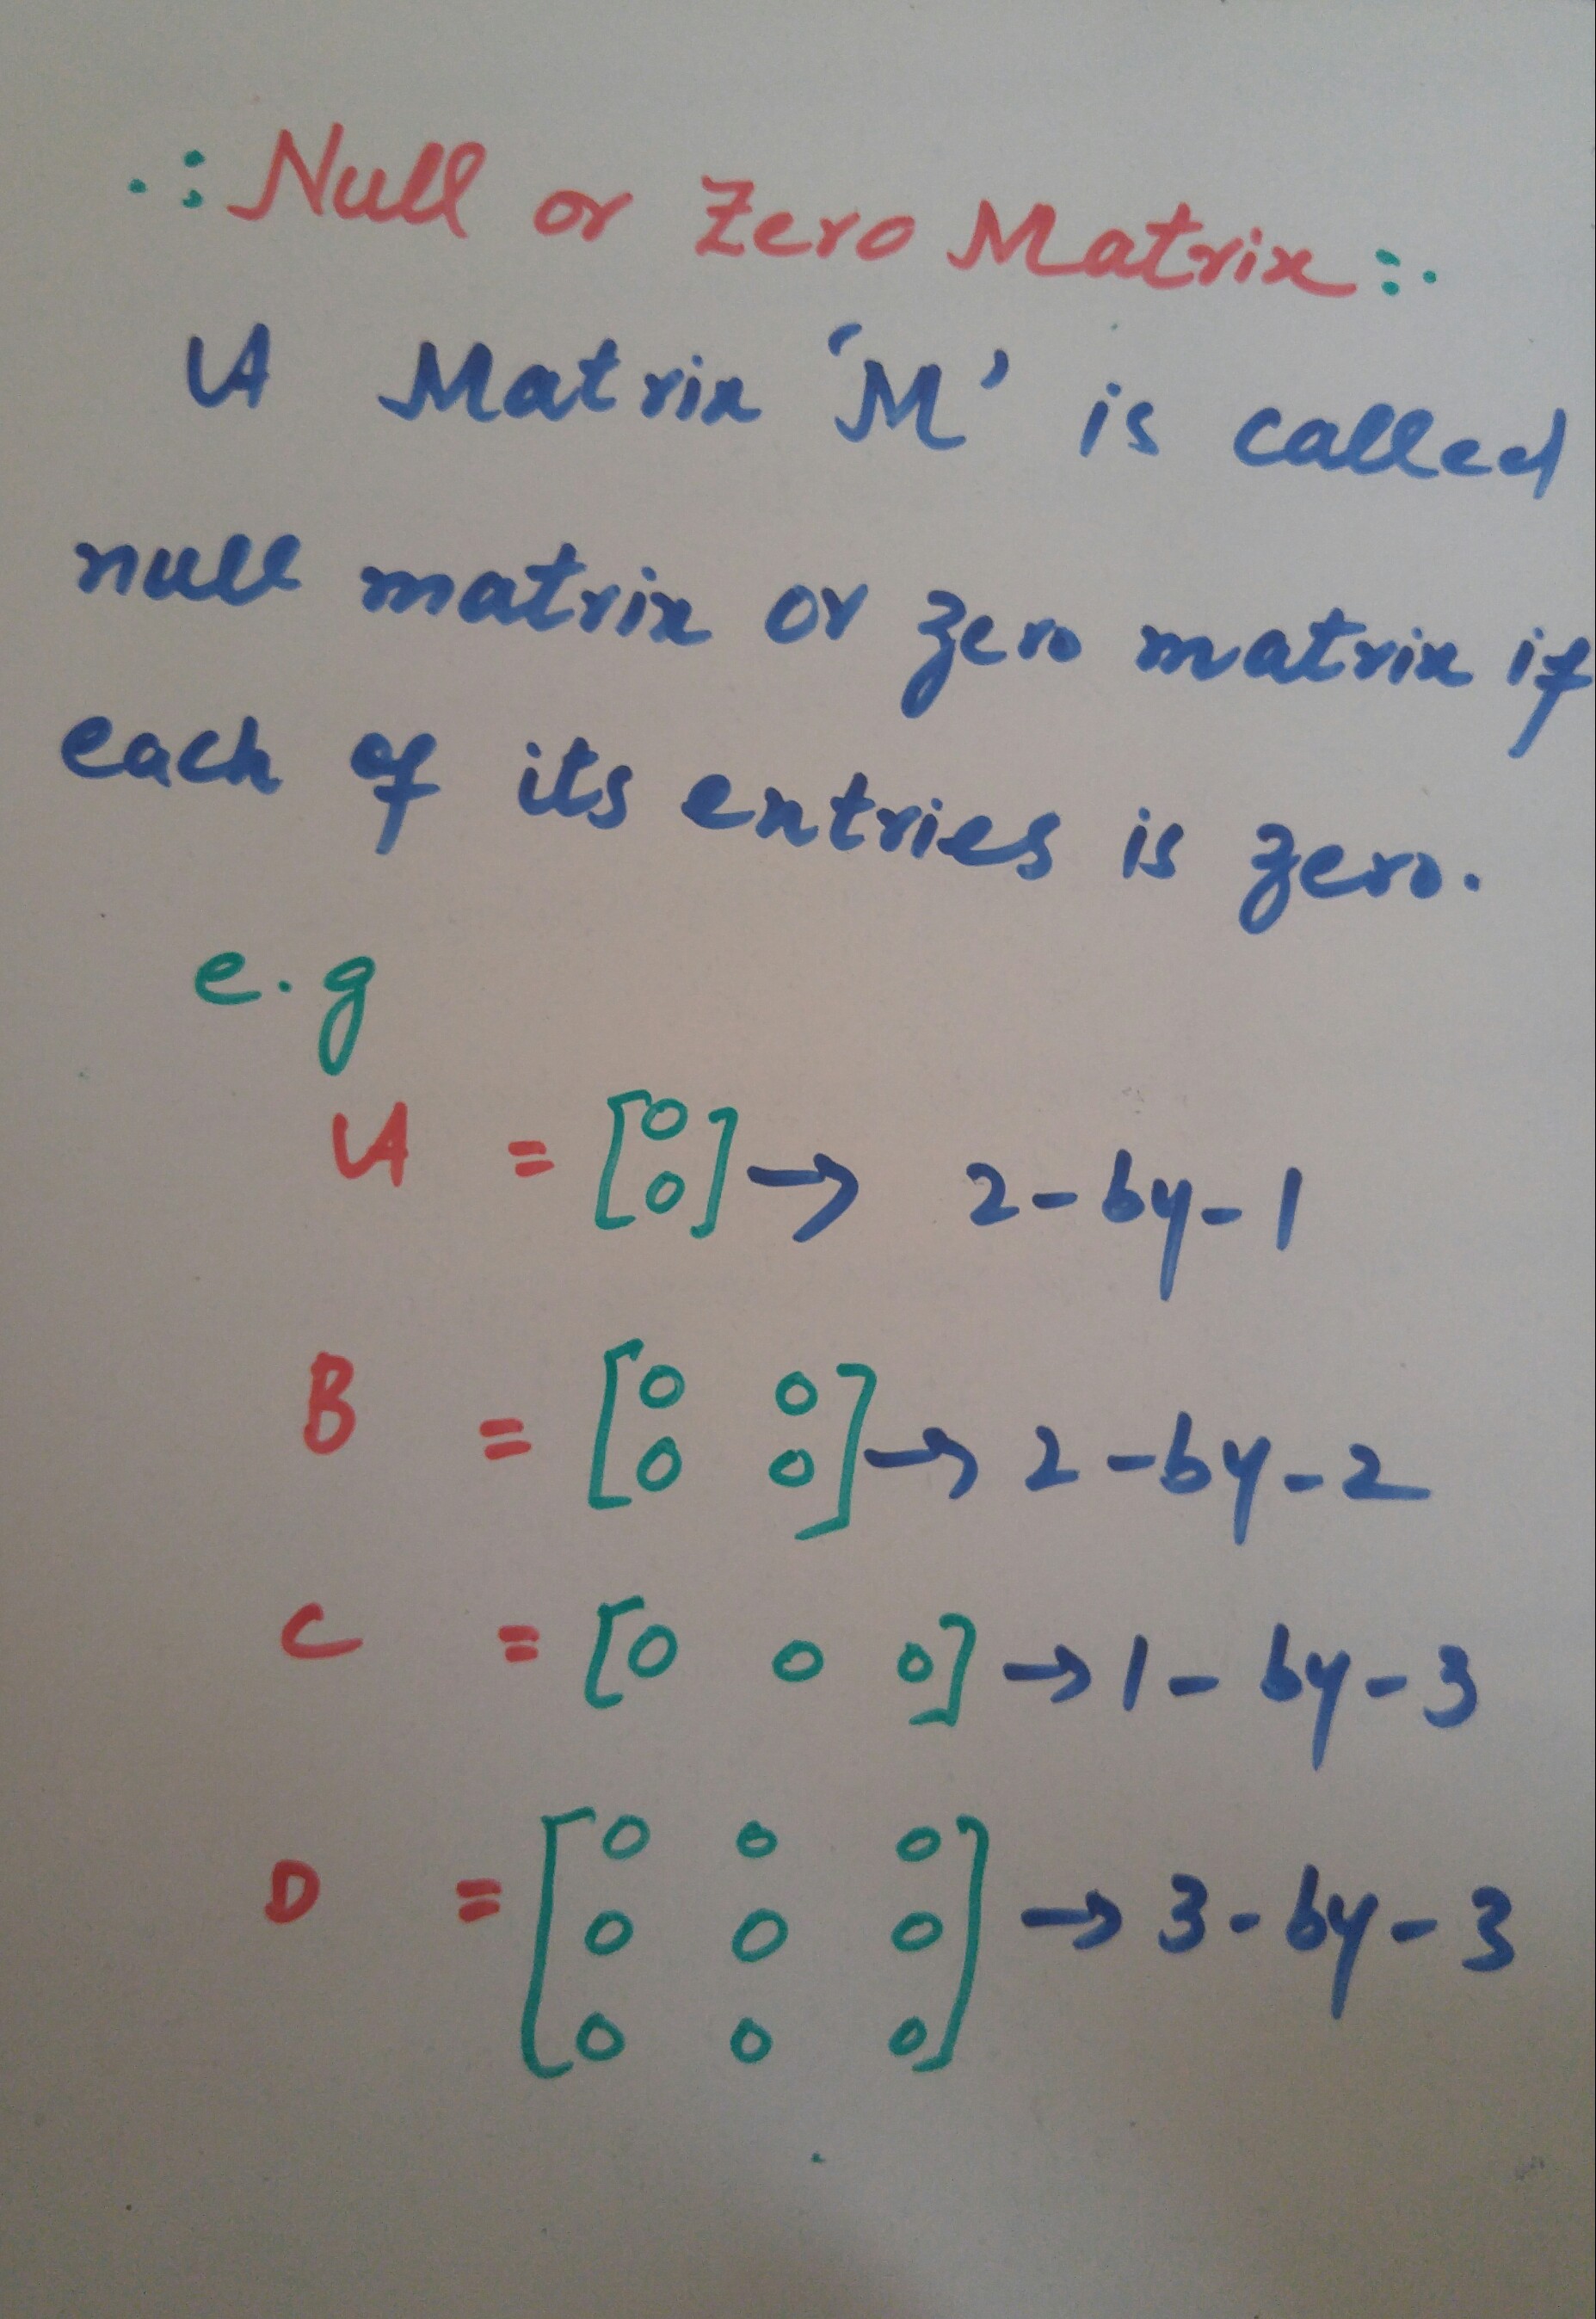 .: Null or Zero Matrix :.
A Matrix 'M' is called
null matrix or zero matrix if
each of its entries is zero.
e.g
A = [0
0] → 2-by-1
B = [0 0
0 0] → 2-by-2
C = [0 0 0] → 1-by-3
D = [0 0 0
0 0 0 → 3-by-3
0 0 0]